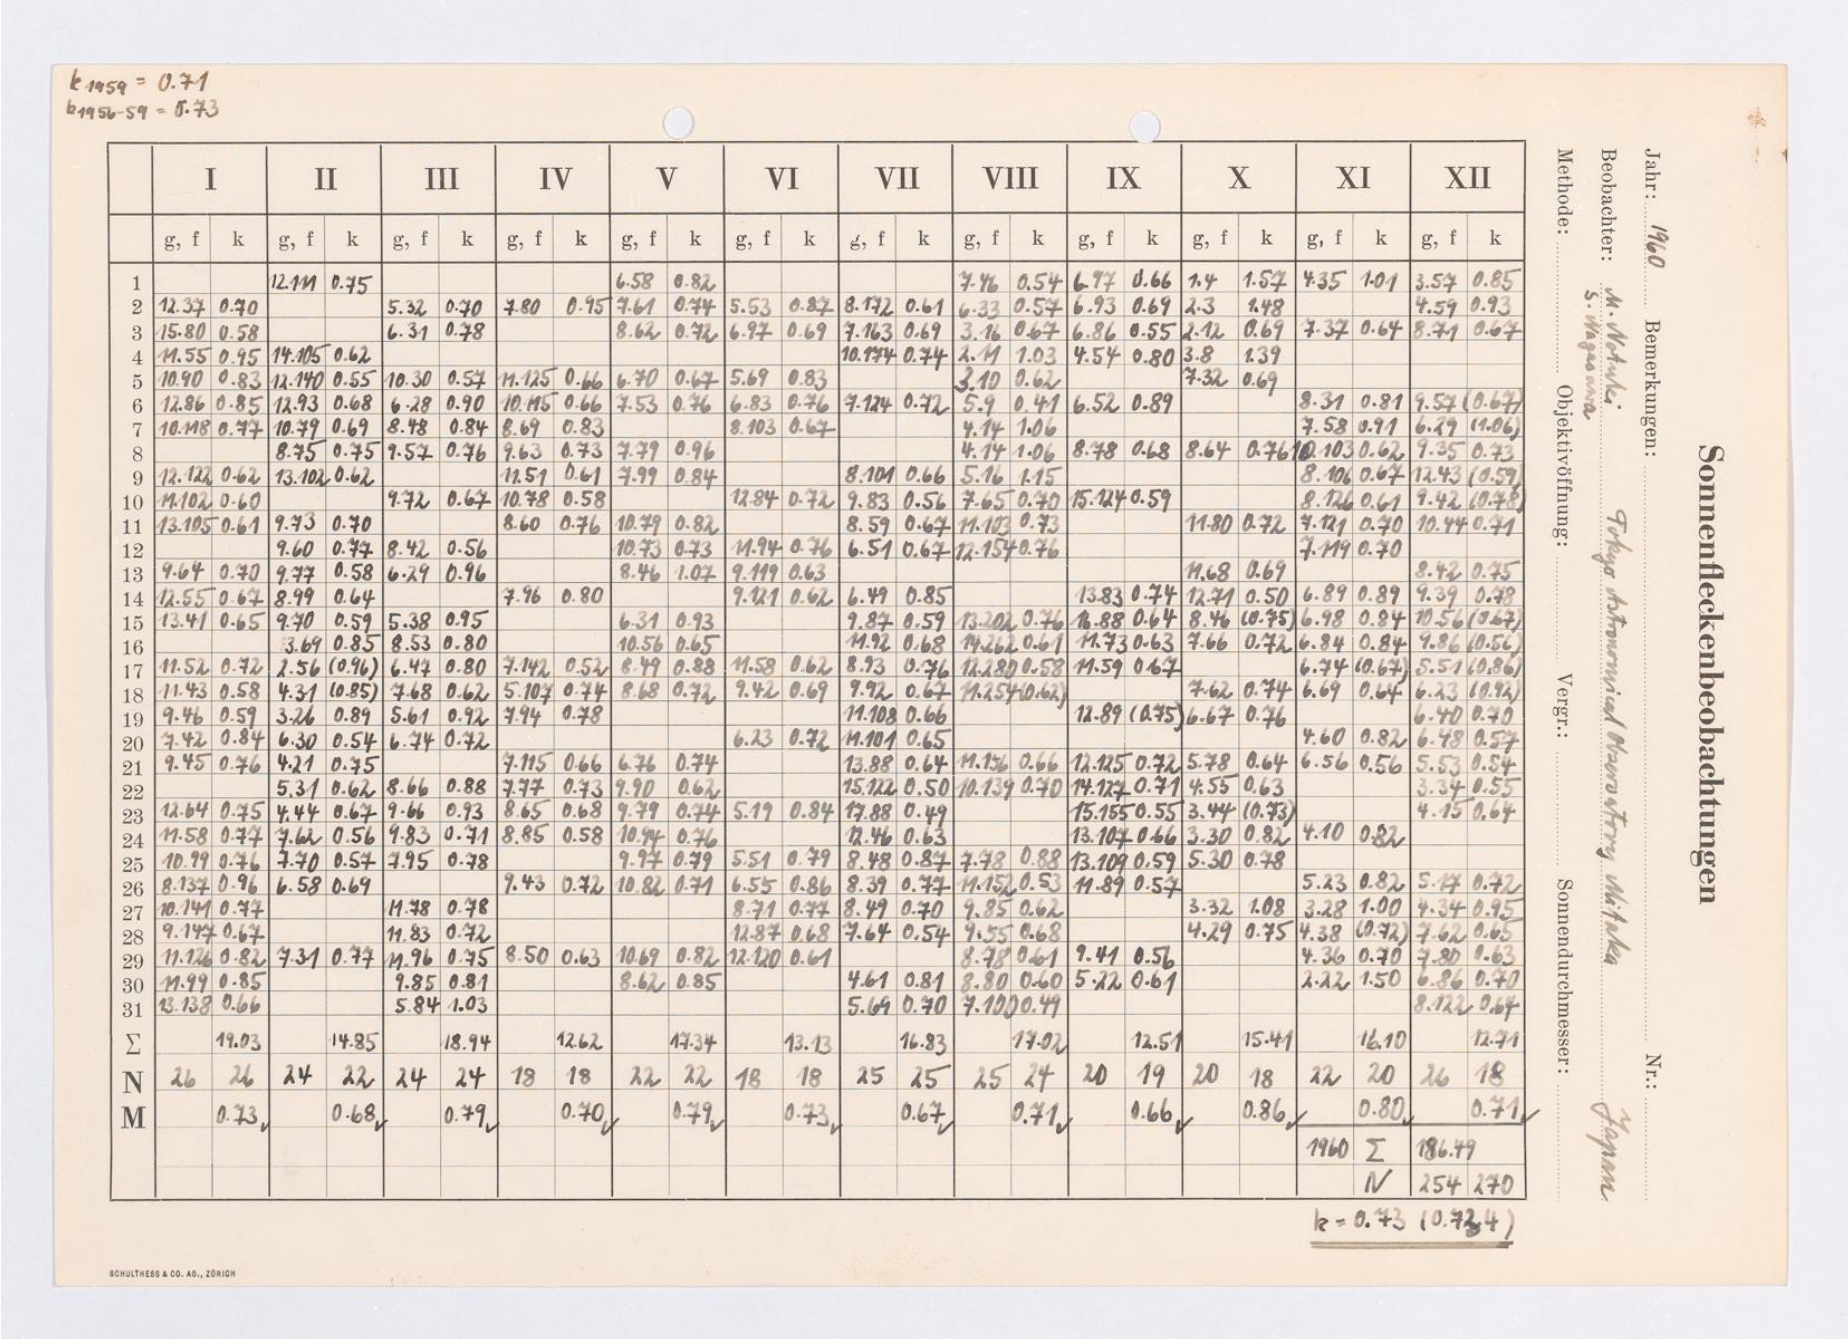 k1959 = 0.71
k1956-59 = 0.73
I II III IV V VI VII VIII IX X XI XII
g, f k g, f k g, f k g, f k g, f k g, f k g, f k g, f k g, f k g, f k g, f k g, f k
1 12.111 0.75 6.58 0.82 7.46 0.54 6.97 0.66 1.4 1.57 4.35 1.01 3.57 0.85
2 12.37 0.70 5.32 0.70 7.80 0.95 7.61 0.74 5.53 0.87 8.172 0.61 6.33 0.57 6.93 0.69 2.3 1.48 4.59 0.93
3 15.80 0.58 6.31 0.78 8.62 0.72 6.97 0.69 7.163 0.69 3.16 0.67 6.86 0.55 2.12 0.69 7.37 0.64 8.71 0.67
4 11.55 0.95 14.105 0.62 10.174 0.74 2.11 1.03 4.54 0.80 3.8 1.39
5 10.90 0.83 12.140 0.55 10.30 0.57 11.125 0.66 6.70 0.67 5.69 0.83 3.10 0.62 7.32 0.69
6 12.86 0.85 12.93 0.68 6.28 0.90 10.115 0.66 7.53 0.76 6.83 0.76 7.124 0.72 5.9 0.41 6.52 0.89 8.31 0.81 9.57 (0.67)
7 10.118 0.77 10.79 0.69 8.48 0.84 8.69 0.83 8.103 0.67 4.14 1.06 7.58 0.91 6.29 (1.06)
8 8.75 0.75 9.57 0.76 9.63 0.73 7.79 0.96 4.14 1.06 8.78 0.68 8.64 0.76 10.103 0.62 9.35 0.73
9 12.122 0.62 13.102 0.62 11.51 0.61 7.99 0.84 8.101 0.66 5.16 1.15 8.106 0.67 12.43 (0.59)
10 11.102 0.60 9.72 0.67 10.78 0.58 12.84 0.72 9.83 0.56 7.65 0.70 15.124 0.59 8.126 0.61 9.42 (0.78)
11 13.105 0.61 9.73 0.70 8.60 0.76 10.79 0.82 8.59 0.67 11.103 0.73 11.80 0.72 7.121 0.70 10.44 0.71
12 9.60 0.77 8.42 0.56 10.73 0.73 11.94 0.76 6.51 0.67 12.154 0.76 7.119 0.70
13 9.64 0.70 9.77 0.58 6.29 0.96 8.46 1.07 9.119 0.63 11.68 0.69 8.42 0.75
14 12.55 0.67 8.99 0.64 7.96 0.80 9.121 0.62 6.49 0.85 13.83 0.74 12.71 0.50 6.89 0.89 9.39 0.78
15 13.41 0.65 9.70 0.59 5.38 0.95 6.31 0.93 9.87 0.59 13.202 0.76 16.88 0.64 8.46 (0.75) 6.98 0.84 10.56 (0.67)
16 3.69 0.85 8.53 0.80 10.56 0.65 11.92 0.68 14.262 0.61 11.73 0.63 7.66 0.72 6.84 0.84 9.86 (0.56)
17 11.52 0.72 2.56 (0.96) 6.47 0.80 7.142 0.52 8.49 0.88 11.58 0.62 8.93 0.76 12.280 0.58 11.59 0.67 6.74 (0.67) 5.51 (0.86)
18 11.43 0.58 4.31 (0.85) 7.68 0.62 5.107 0.74 8.68 0.72 9.42 0.69 9.92 0.67 11.254 (0.62) 7.62 0.74 6.69 0.64 6.23 (0.92)
19 9.46 0.59 3.26 0.89 5.61 0.92 7.94 0.78 11.108 0.66 12.89 (0.75) 6.67 0.76 6.40 0.70
20 7.42 0.84 6.30 0.54 6.74 0.72 6.23 0.72 11.101 0.65 4.60 0.82 6.48 0.57
21 9.45 0.76 4.21 0.75 7.115 0.66 6.76 0.74 13.88 0.64 11.136 0.66 12.125 0.72 5.78 0.64 6.56 0.56 5.53 0.54
22 5.31 0.62 8.66 0.88 7.77 0.73 9.90 0.62 15.122 0.50 10.139 0.70 14.127 0.71 4.55 0.63 3.34 0.55
23 12.64 0.75 4.44 0.67 9.66 0.93 8.65 0.68 9.79 0.74 5.19 0.84 17.88 0.49 15.155 0.55 3.44 (0.73) 4.15 0.64
24 11.58 0.77 7.62 0.56 9.83 0.71 8.85 0.58 10.94 0.76 12.46 0.63 13.107 0.66 3.30 0.82 4.10 0.82
25 10.99 0.76 7.70 0.57 7.95 0.78 9.97 0.79 5.51 0.79 8.48 0.87 7.78 0.88 13.109 0.59 5.30 0.78
26 8.137 0.96 6.58 0.69 9.43 0.72 10.82 0.71 6.55 0.86 8.39 0.77 11.152 0.53 11.89 0.57 5.23 0.82 5.17 0.72
27 10.141 0.77 11.78 0.78 8.71 0.77 8.49 0.70 9.85 0.62 3.32 1.08 3.28 1.00 4.34 0.95
28 9.147 0.67 11.83 0.72 12.87 0.68 7.64 0.54 9.55 0.68 4.29 0.75 4.38 (0.72) 7.62 0.65
29 11.126 0.82 7.31 0.77 11.96 0.75 8.50 0.63 10.69 0.82 12.120 0.61 8.78 0.61 9.41 0.56 4.36 0.70 7.80 0.63
30 11.99 0.85 9.85 0.81 8.62 0.85 4.61 0.81 8.80 0.60 5.22 0.61 2.22 1.50 6.86 0.70
31 13.138 0.66 5.84 1.03 5.69 0.70 7.100 0.49 8.122 0.64
Σ 19.03 14.85 18.94 12.62 17.34 13.13 16.83 17.02 12.51 15.41 16.10 12.71
N 26 26 24 22 24 24 18 18 22 22 18 18 25 25 25 24 20 19 20 18 22 20 26 18
M 0.73 0.68 0.79 0.70 0.79 0.73 0.67 0.71 0.66 0.86 0.80 0.71
1960 Σ 186.49
N 254 270
k = 0.73 (0.734)
SCHULTHESS & CO. AG., ZÜRICH
Sonnenfleckenbeobachtungen
Jahr: 1960 Bemerkungen: Nr.:
Beobachter: M. Notuki Tokyo Astronomical Observatory Mitaka Japan
S. Nagasawa
Methode: Objektivöffnung: Vergr.: Sonnendurchmesser: